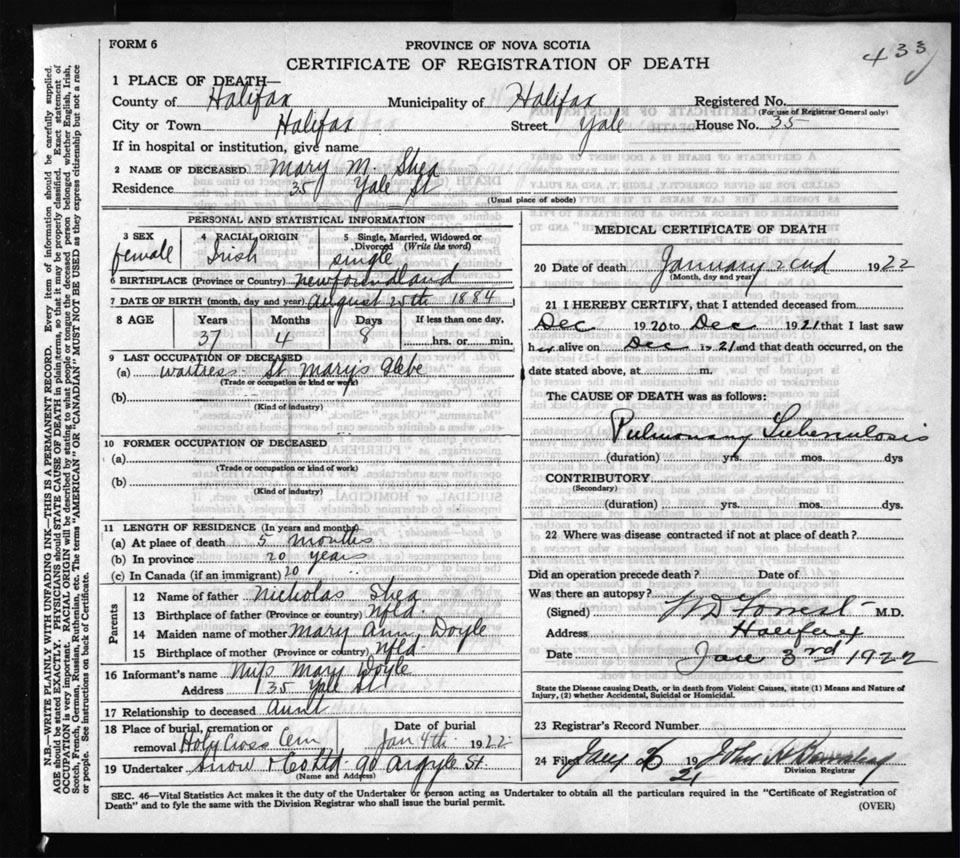 FORM 6
PROVINCE OF NOVA SCOTIA
433
CERTIFICATE OF REGISTRATION OF DEATH
1 PLACE OF DEATH—
County of Halifax Municipality of Halifax Registered No.
(For use of Registrar General only)
City or Town Halifax Street Yale House No. 35
If in hospital or institution, give name
2 NAME OF DECEASED Mary M. Shea
Residence 35 Yale St
(Usual place of abode)
PERSONAL AND STATISTICAL INFORMATION
3 SEX 4 RACIAL ORIGIN 5 Single, Married, Widowed or Divorced (Write the word)
female Irish single
6 BIRTHPLACE (Province or Country) Newfoundland
7 DATE OF BIRTH (month, day and year) August 25th 1884
8 AGE Years Months Days If less than one day.
37 4 8 hrs. or min.
9 LAST OCCUPATION OF DECEASED
(a) Waitress St Marys Glebe
(Trade or occupation or kind or work)
(b)
(Kind of industry)
10 FORMER OCCUPATION OF DECEASED
(a)
(Trade or occupation or kind or work)
(b)
(Kind of industry)
11 LENGTH OF RESIDENCE (In years and months)
(a) At place of death 5 months
(b) In province 20 years
(c) In Canada (if an immigrant) 20 "
Parents
12 Name of father Nicholas Shea
13 Birthplace of father (Province or country) Nfld.
14 Maiden name of mother Mary Ann Doyle
15 Birthplace of mother (Province or country) Nfld.
16 Informant's name Miss Mary Doyle
Address 35 Yale St
17 Relationship to deceased Aunt
18 Place of burial, cremation or removal Holy Cross Cem Date of burial Jan 4th 1922
19 Undertaker Snow & Co Ltd 90 Argyle St
(Name and Address)
MEDICAL CERTIFICATE OF DEATH
20 Date of death January 2nd 1922
(Month, day and year)
21 I HEREBY CERTIFY, that I attended deceased from
Dec 1920 to Dec 1921 that I last saw
her alive on Dec 1921 and that death occurred, on the
date stated above, at m.
The CAUSE OF DEATH was as follows:
Pulmonary Tuberculosis
(duration) yrs. mos. dys
CONTRIBUTORY
(Secondary)
(duration) yrs. mos. dys.
22 Where was disease contracted if not at place of death?
Did an operation precede death? Date of
Was there an autopsy?
(Signed) Forrest M.D.
Address Halifax
Date Jan 3rd 1922
State the Disease causing Death, or in death from Violent Causes, state (1) Means and Nature of
Injury, (2) whether Accidental, Suicidal or Homicidal.
23 Registrar's Record Number
24 Filed 19 John
Division Registrar
SEC. 46—Vital Statistics Act makes it the duty of the Undertaker or person acting as Undertaker to obtain all the particulars required in the "Certificate of Registration of
Death" and to fyle the same with the Division Registrar who shall issue the burial permit.
(OVER)
N.B.—WRITE PLAINLY WITH UNFADING INK—THIS IS A PERMANENT RECORD. Every item of information should be carefully supplied.
AGE should be stated EXACTLY. PHYSICIANS should STATE CAUSE OF DEATH in plain terms, so that it may be properly classified. Exact statement of
OCCUPATION is very important. RACIAL ORIGIN will be described by stating to what people or tongue the deceased person belonged whether English, Irish,
Scotch, French, German, Russian, Ruthenian, etc. The terms "AMERICAN" OR "CANADIAN" MUST NOT BE USED as they express citizenship but not a race
or people. See instructions on back of Certificate.